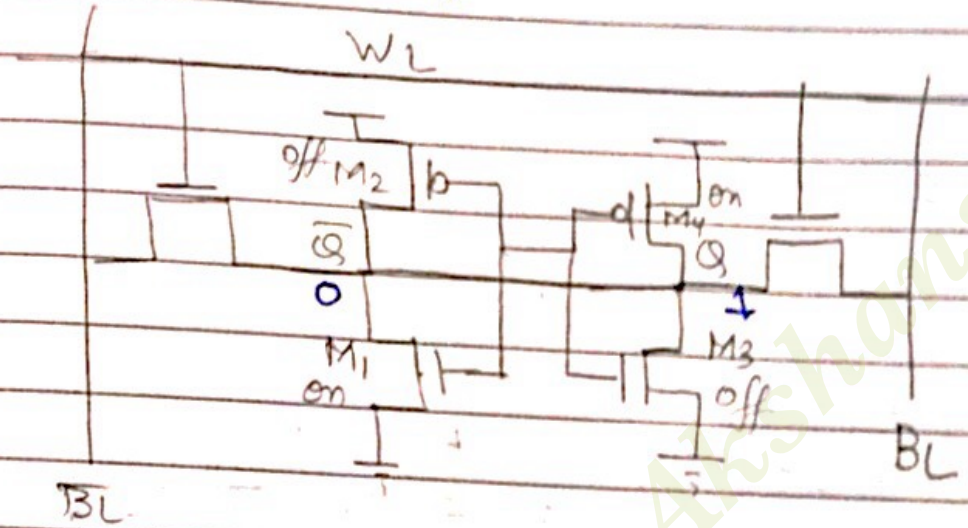 WL
off M2
on
M4
Q̅
Q
0
1
M1
M3
on
off
BL
B̅L̅
Akshans